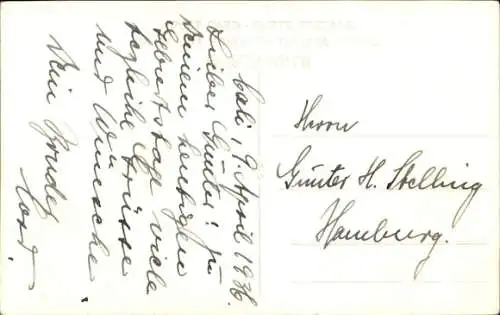 Cali, 9. April 1936.
Lieber Günter! Zu
Deinem heutigen
Geburtstage viele
herzliche Grüsse
und Wünsche
Dein Bruder
Horst.
Herrn
Günter H. Stelling
Hamburg.